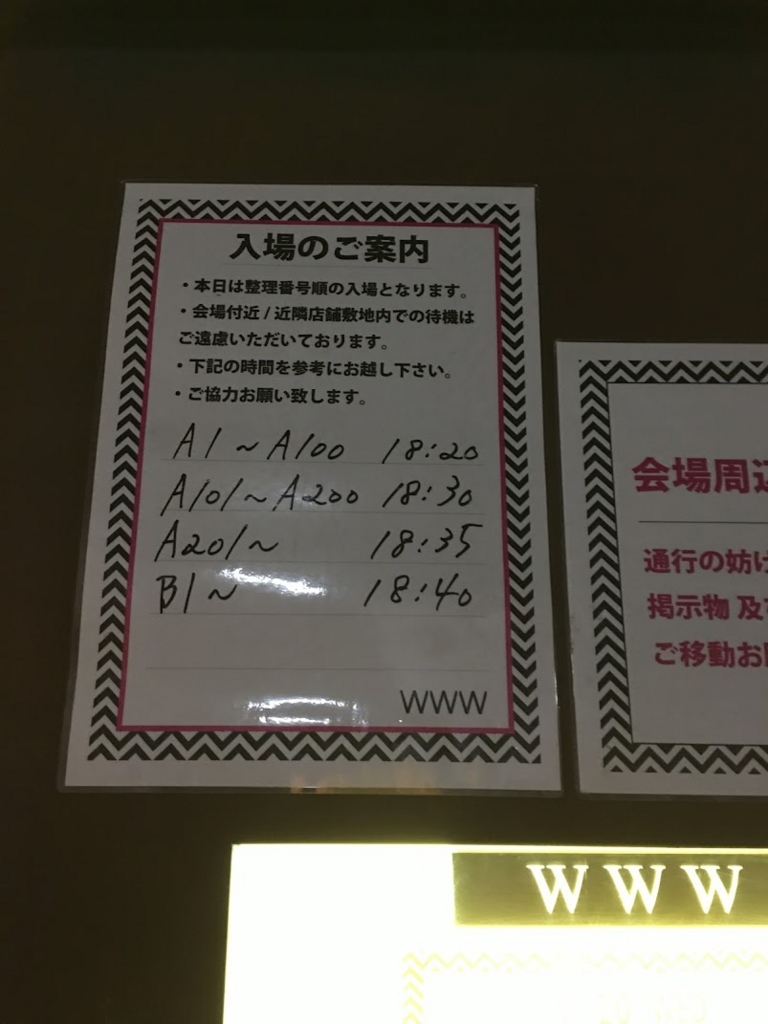 入場のご案内
・本日は整理番号順の入場となります。
・会場付近 / 近隣店舗敷地内での待機は
ご遠慮いただいております。
・下記の時間を参考にお越し下さい。
・ご協力お願い致します。
A1～A100 18:20
A101～A200 18:30
A201～ 18:35
B1～ 18:40
WWW
会場周辺
通行の妨げ
掲示物 及び
ご移動お
WWW